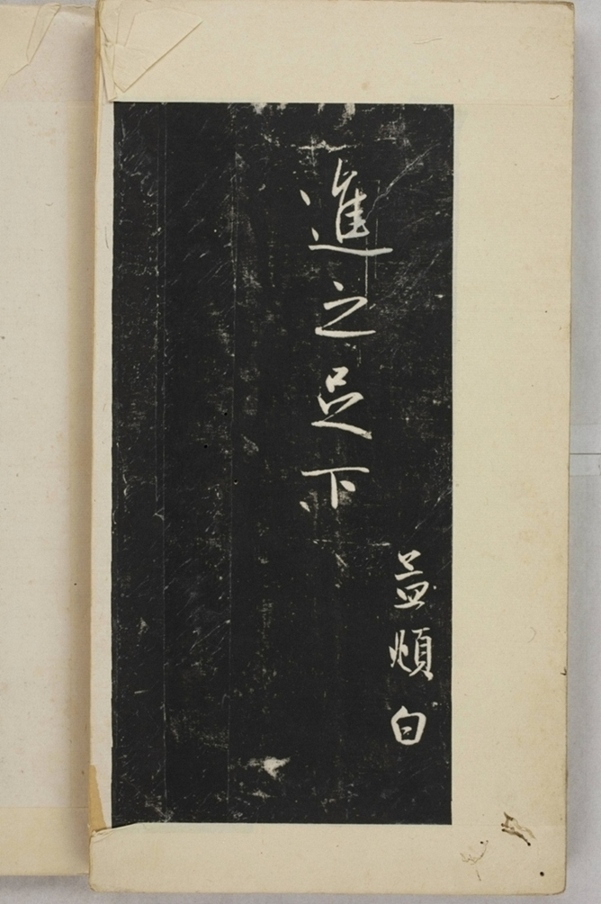 孟頫白
進之足下